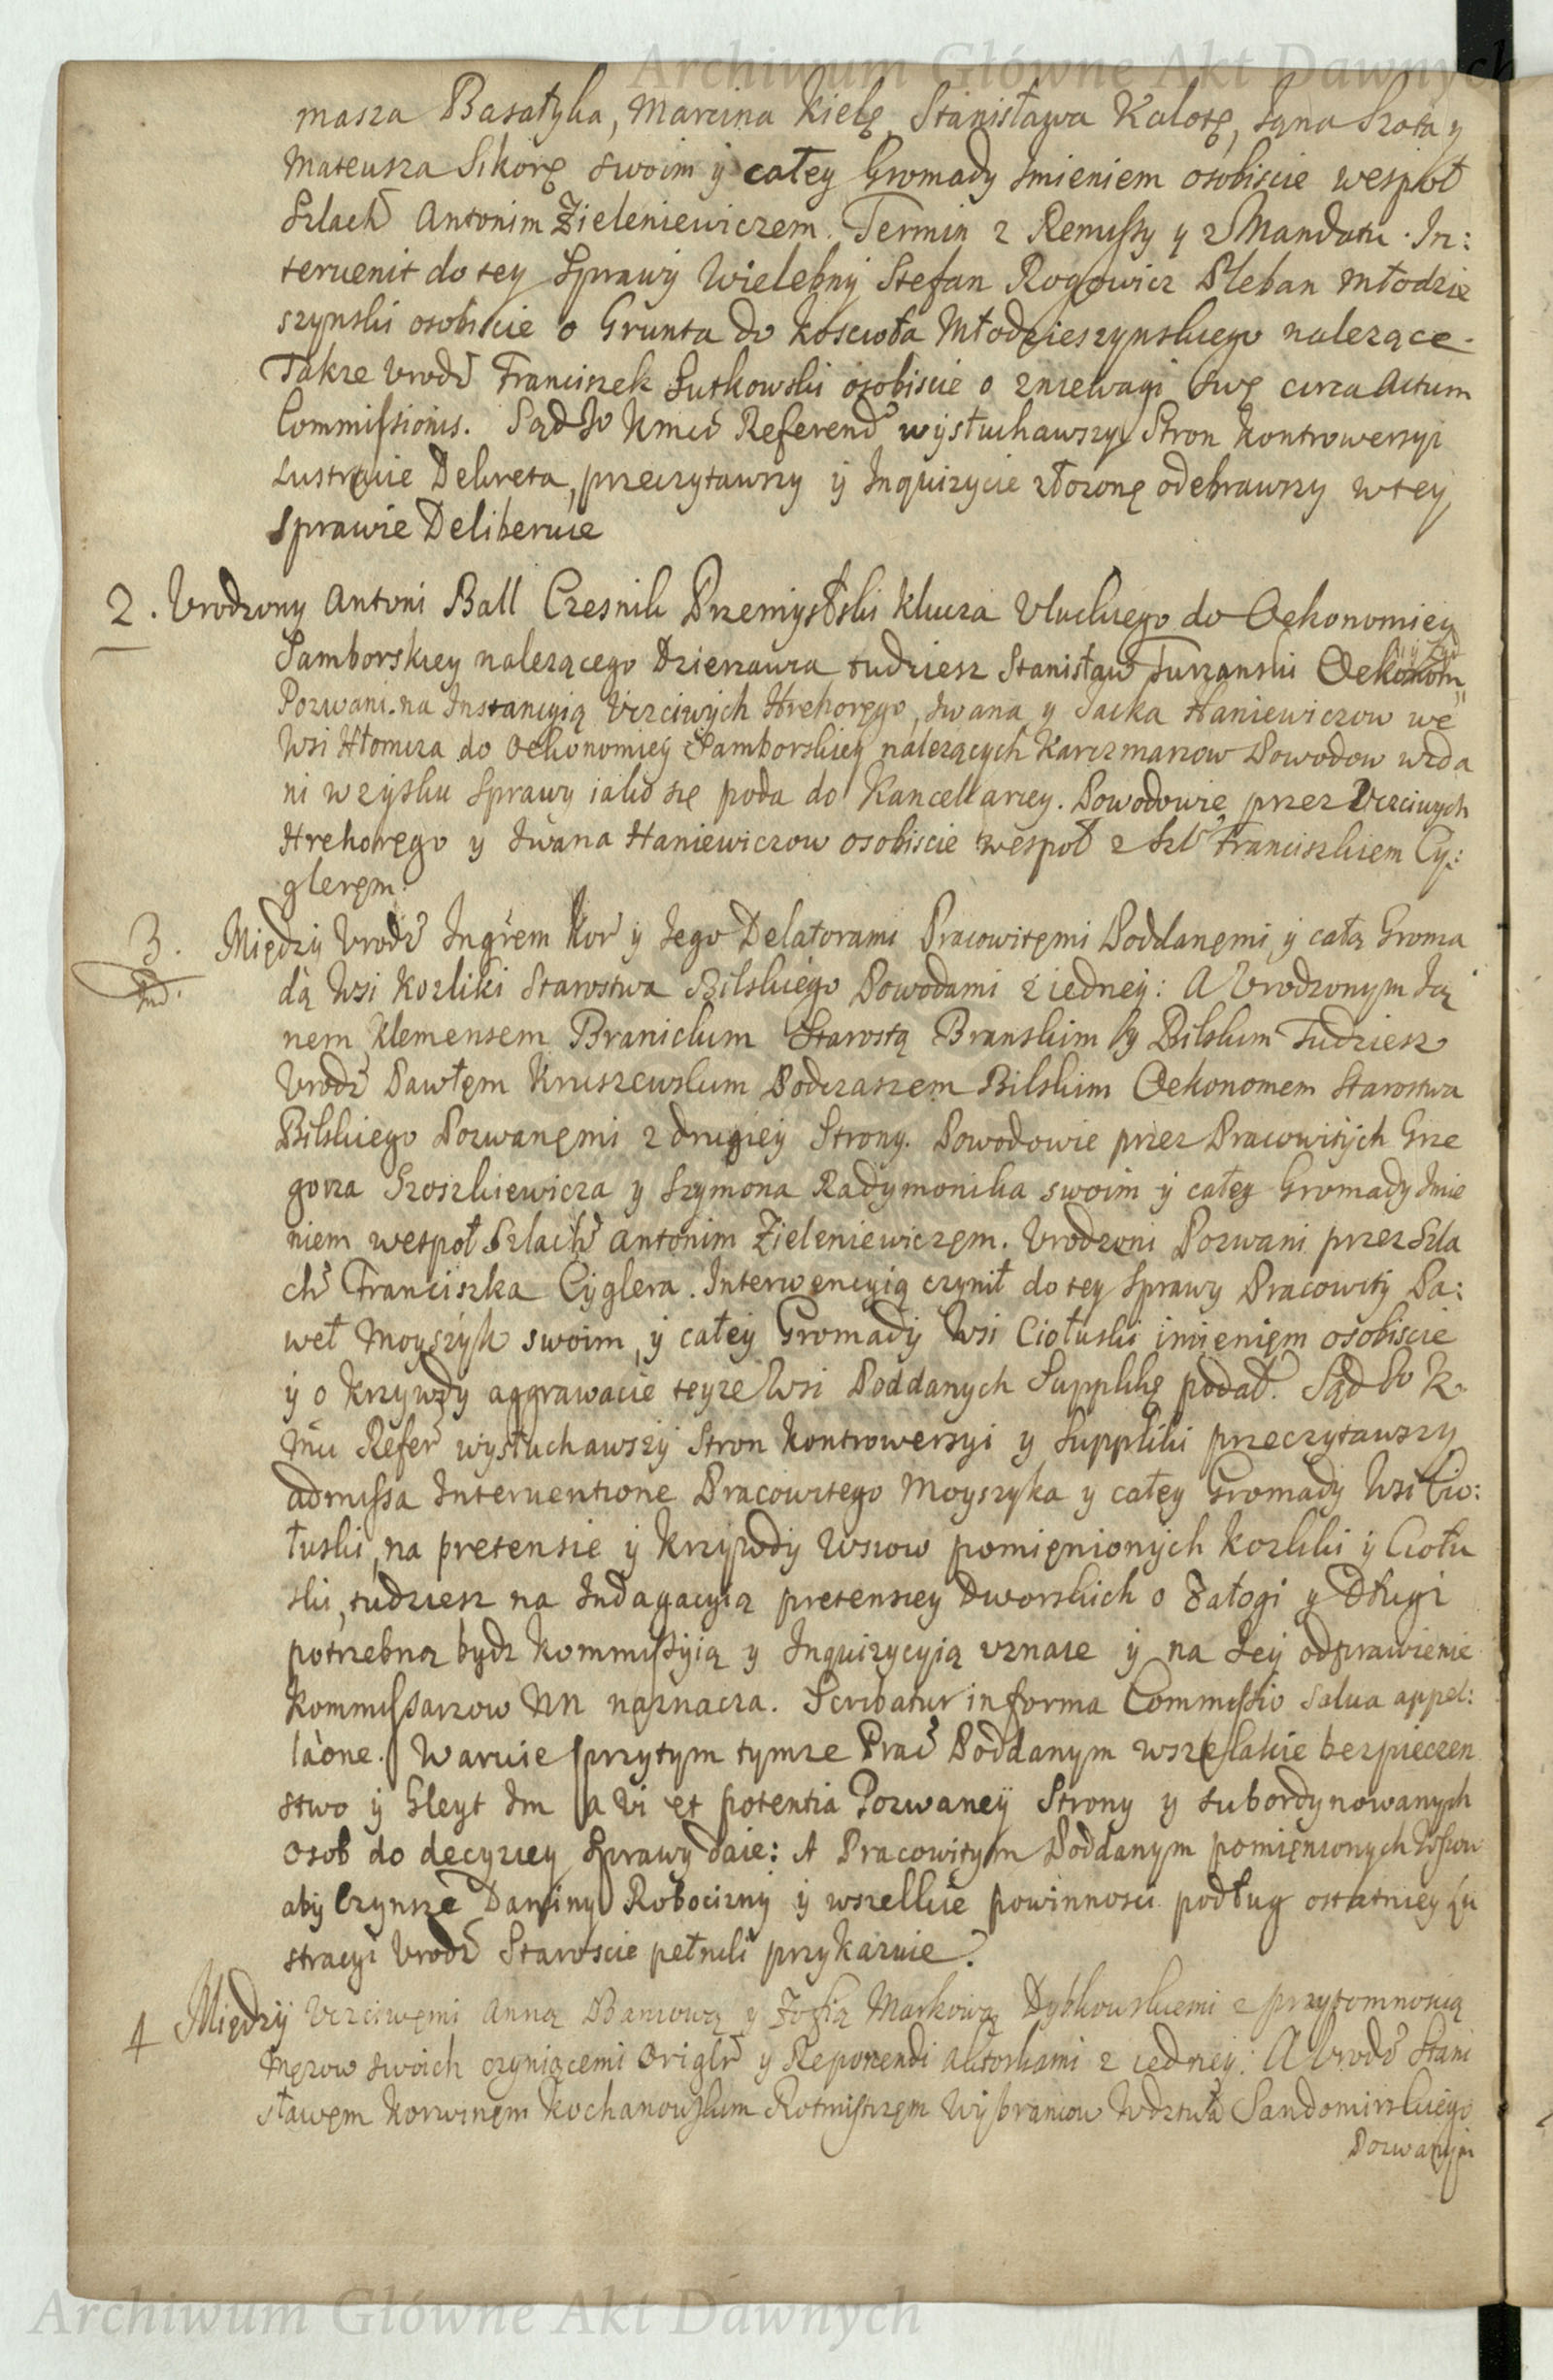 Archiwum Główne Akt Dawnych
masza Basałyka, Marcina Kielę, Stanisława Kalotę, Jana Szota y
Mateusza Sikorę swoim y całey Gromady Imieniem osobiscie wespoł
Szlach Antonim Zieleniewiczem. Termin z Remissy y z Mandatu. In:
teruenit do tey Sprawy Wielebny Stefan Rogowicz Pleban Młodzie
szynski osobiscie o Grunta do Koscioła Młodzieszynskiego nalezące.
Takze Vrodz Franciszek Sutkowski osobiscie o zniewagi swe circa Actum
Commissionis. Sąd Jo Kmci Referend wysłuchawszy Stron Kontrowersyi
Lustracie Dekreta, przeczytawszy y Inquizycie złozonę odebrawszy w tey
sprawie Deliberuie
2. Vrodzony Antoni Ball Czesnik Przemyslski Klucza Uluckiego do Oekonomiey
Samborskiey nalezącego Dzierzawca tudziesz Stanisław Turzanski Oekonom
Pozwani na Instancyią Vczciwych Hrehorego, Iwana y Jacka Haniewiczow we
Wsi Hłomcza do Oekonomiey Samborskiey nalezących Karczmarzow Powodow wzda
ni w zysku Sprawy iako się poda do Kancellariey. Powodowie przez Vczciwych
Hrehorego y Iwana Haniewiczow osobiscie wespoł z Szl Franciszkiem Cy:
glerem.
3. Między Vrodz Ingrem Kor y Jego Delatorami Pracowitemi Poddanemi y całą Groma
dą Wsi Kozliki Starostwa Bilskiego Powodami z iedney: A Vrodzonym Ja
nem Klemensem Branickim Starostą Branskim y Bilskim Tudziesz
Vrodz Pawłem Kruszewskim Podczaszem Bilskim Oekonomem Starostwa
Bilskiego Pozwanemi z drugiey Strony. Powodowie przez Pracowitych Grze
gorza Szoszkiewicza y Szymona Radymonika swoim y całey Gromady Imie
niem wespoł Szlach Antonim Zieleniewiczem. Vrodzoni Pozwani przez Szla
ch Franciszka Cyglera. Interwencyią czynił do tey Sprawy Pracowity Pa:
weł Moyszyk swoim, y całey Gromady Wsi Ciołuski imieniem osobiscie
y o Krzywdy aggrawacie teyze Wsi Poddanych Supplikę podał. Sąd Jo K
Mci Refer wysłuchawszy Stron Kontrowersyi y Suppliki przeczytawszy
admissa Interuentione Pracowitego Moyszyka y całey Gromady Wsi Cio:
łuski, na pretensie y Krzywdy Wsiow pomienionych Kozliki y Ciołu
ski, tudziesz na Indagacyią pretensiey Dworskich o Załogi y Długi
potrzebną bydz Kommissyią y Inquizycyią vznaie y na Jey odprawienie
Kommissarzow NN naznacza. Scribatur in forma Commissio salua appel:
laone. Waruie przytym tymze Prac Poddanym wszelakie bezpieczen
stwo y Gleyt Im a vi et potentia Pozwaney Strony y subordynowanych
Osob do decyziey Sprawy daie: A Pracowitym Poddanym pomienionych Wsiow
aby Czynsze Daniny Robocizny y wszelkie powinnosci podług ostatniey Lu
stracyi Vrodz Staroscie pełnili przykazuie.
4 Między Vczciwemi Anną Baniową y Zofią Markową Dybkowskiemi z przytomnoscią
Męzow swoich czyniącemi Origlr y Reponendi Aktorkami z iedney: A Vrodz Stani
sławem Korwinem Kochanowskim Rotmistrzem Wybrancow Wdztwa Sandomirskiego
Pozwanym
Archiwum Główne Akt Dawnych